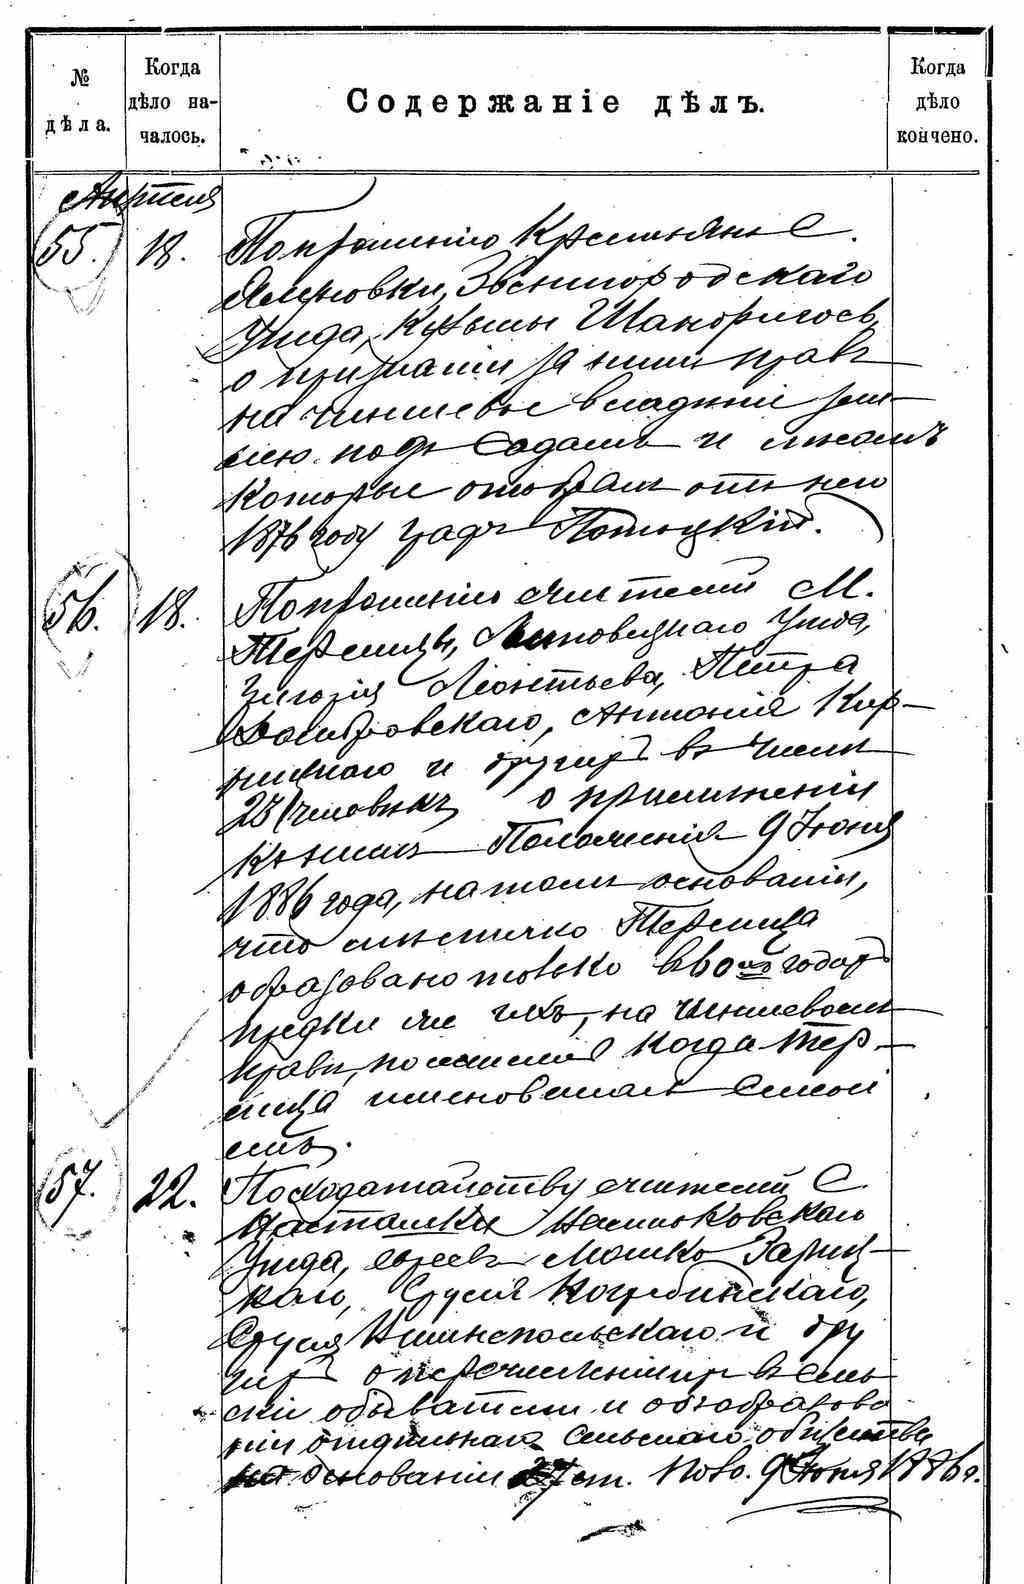 №
дѣла.
Когда
дѣло на-
чалось.
Содержаніе дѣлъ.
Когда
дѣло
кончено.
Апрѣля
55. 18. По прошенію Крестьянъ С.
Звенигородскаго
Уѣзда, Кузьмы
о признаніи за ними правъ
на чиншевое владѣніе зем-
лею подъ садомъ и лѣсомъ
которые отобралъ отъ нею
1876 году графъ Потоцкій.
56. 18. По прошенію жителей М.
Терлицы, Липовецкаго Уѣзда,
Григорія Леонтьева, Петра
Домбровскаго, Антонія Кор-
и другихъ въ числѣ
28 человѣкъ о примѣненіи
къ нимъ Положенія 9 Іюня
1886 года, на томъ основаніи,
что мѣстечко Терлица
образовано только въ 60хъ годахъ
предки же ихъ, на чиншевомъ
правѣ, поселились когда Тер-
лица именовалась Селені
емъ.
57. 22. По ходатайству жителей С
Насташки Васильковскаго
Уѣзда, евреевъ Мошко Зариц-
каго, Сруля Погребинскаго,
Сруля и дру
гихъ о перечисленіи ихъ въ сель
скіе обыватели и объ образова
ніи отдѣльнаго сельскаго общества
на основаніи 27 ст. Поло. 9 Іюня 1886 г.